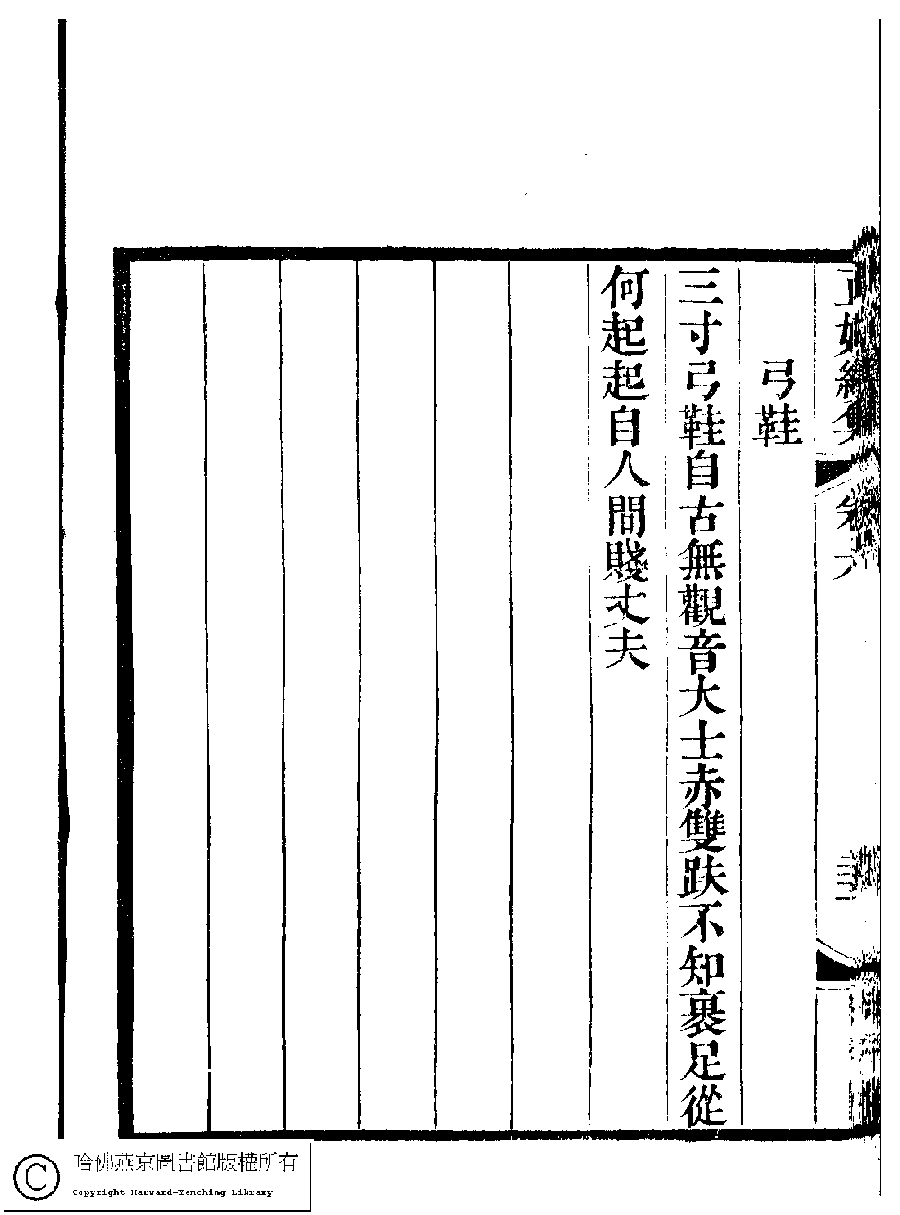 弓鞋
三寸弓鞋自古無觀音大士赤雙趺不知裹足從
何起起自人間賤丈夫
哈佛燕京圖書館版權所有
Copyright Harvard-Yenching Library